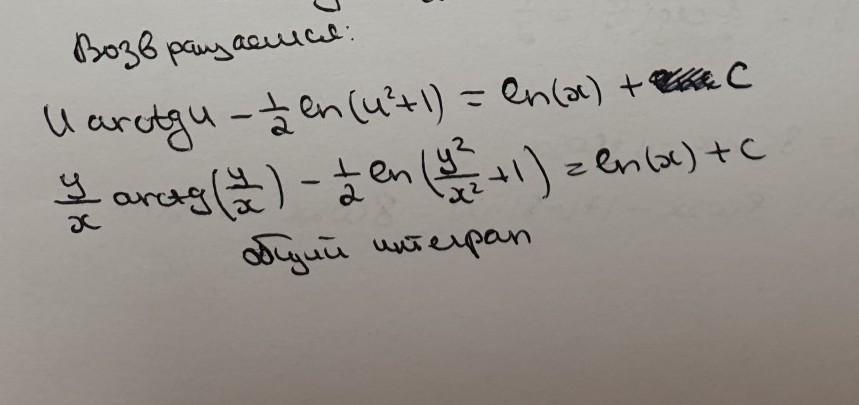 Возвращаемся:
u arctg u - 1/2 ln(u²+1) = ln(x) + C
y/x arctg(y/x) - 1/2 ln(y²/x² +1) = ln(x) + C
общий интеграл